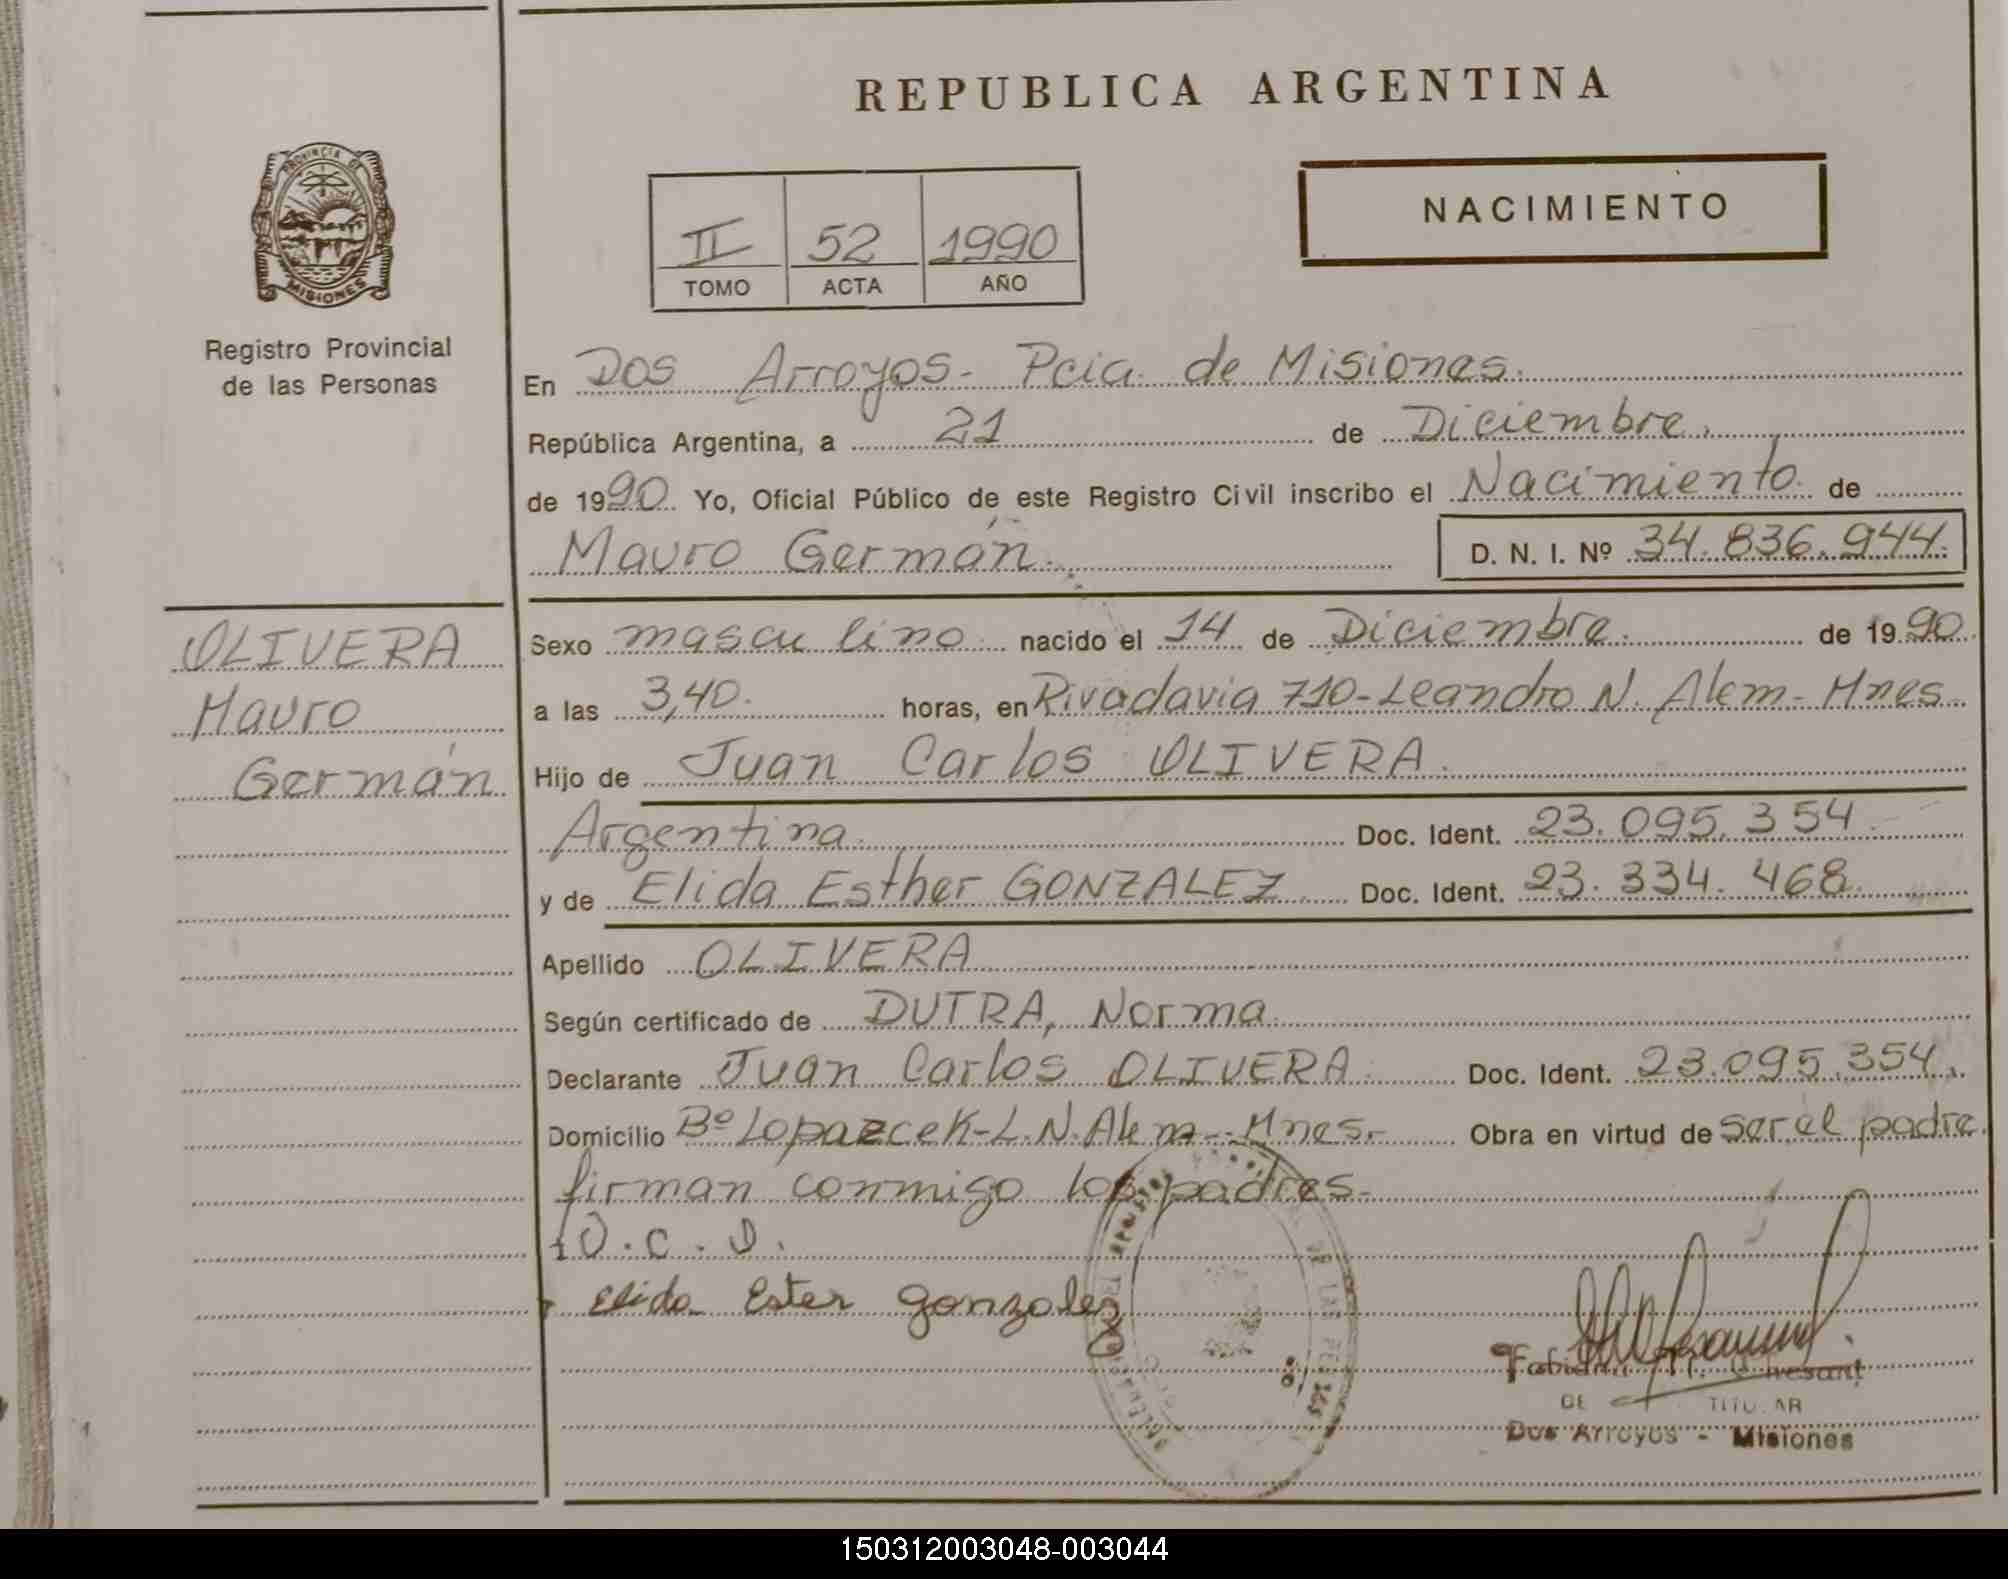 REPUBLICA ARGENTINA
PROVINCIA DE
MISIONES
Registro Provincial
de las Personas
NACIMIENTO
II 52 1990
TOMO ACTA AÑO
En Dos Arroyos - Pcia. de Misiones.
República Argentina, a 21 de Diciembre.
de 1990. Yo, Oficial Público de este Registro Civil inscribo el Nacimiento de
Mauro Germán. D. N. I. Nº 34.836.944.
OLIVERA
Mauro
Germán
Sexo masculino nacido el 14 de Diciembre. de 1990.
a las 3,40. horas, en Rivadavia 710-Leandro N. Alem - Mnes.
Hijo de Juan Carlos OLIVERA.
Argentina. Doc. Ident. 23.095.354
y de Elida Esther GONZALEZ. Doc. Ident. 23.334.468.
Apellido OLIVERA
Según certificado de DUTRA, Norma.
Declarante Juan Carlos OLIVERA. Doc. Ident. 23.095.354.
Domicilio Bº Lopazcek-L.N.Alem - Mnes.- Obra en virtud de ser el padre.
firman conmigo los padres.-
O.C.D.
Elida Ester gonzalez
DE LAS
TITULAR
Dos Arroyos - Misiones
150312003048-003044